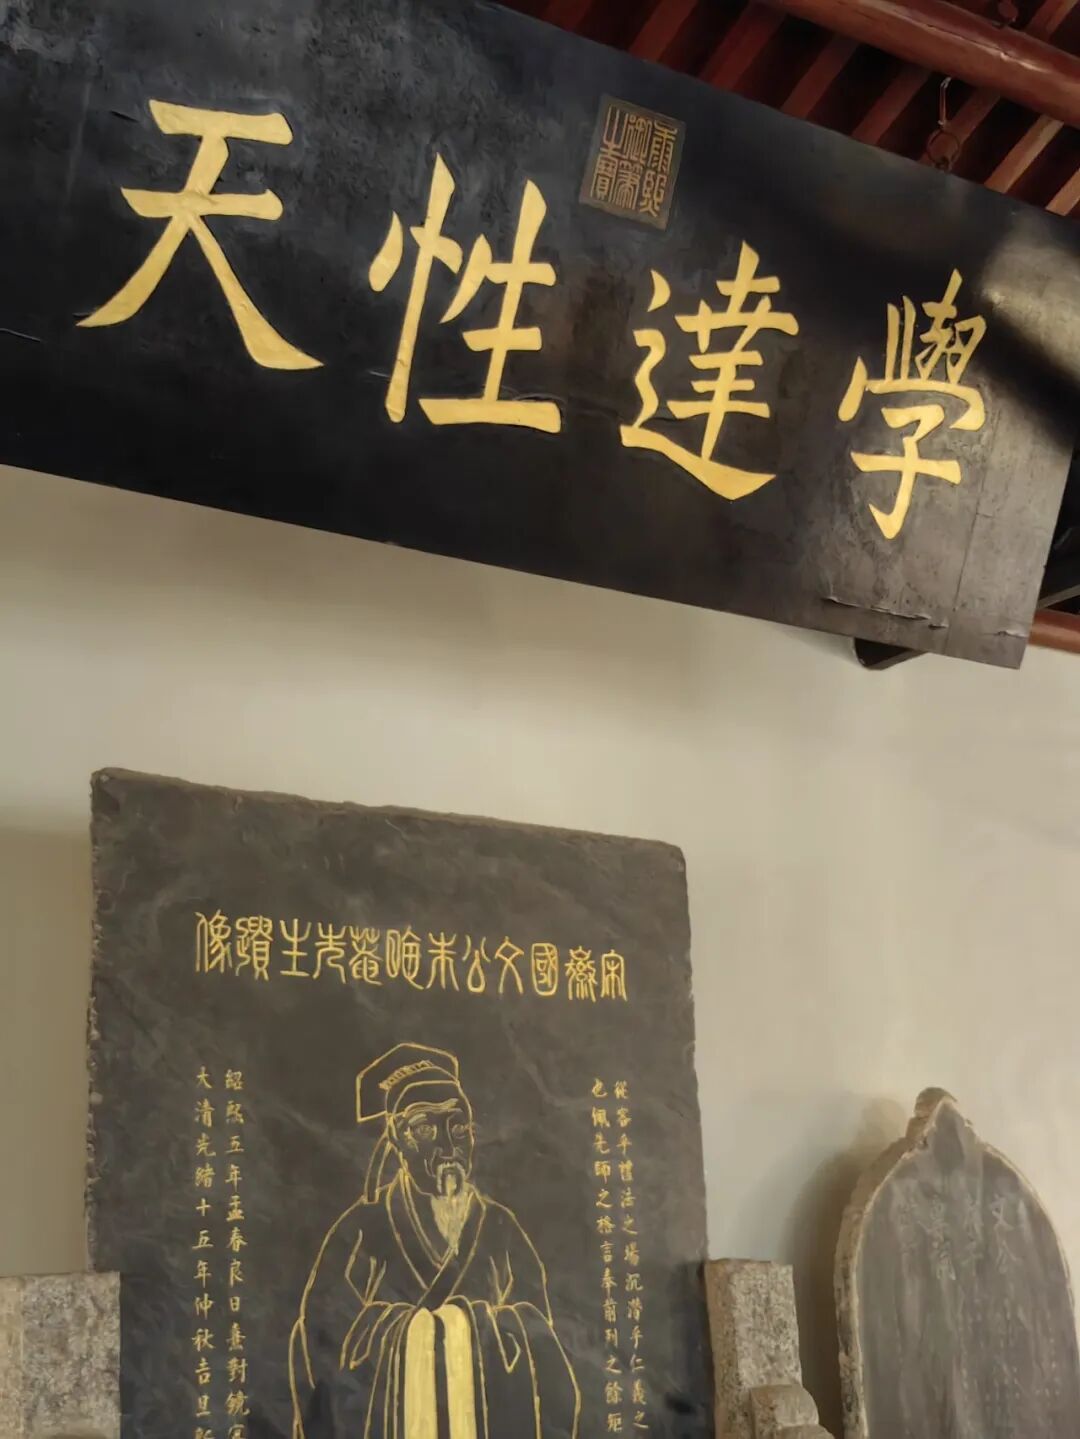 學達性天
康熙御筆之寶
宋徽國文公朱晦菴先生遺像
從容乎禮法之場沉潛乎仁義之
也佩先師之格言奉前烈之餘矩
紹熙五年孟春良日熹對鏡寫
大清光緒十五年仲秋吉旦
文公